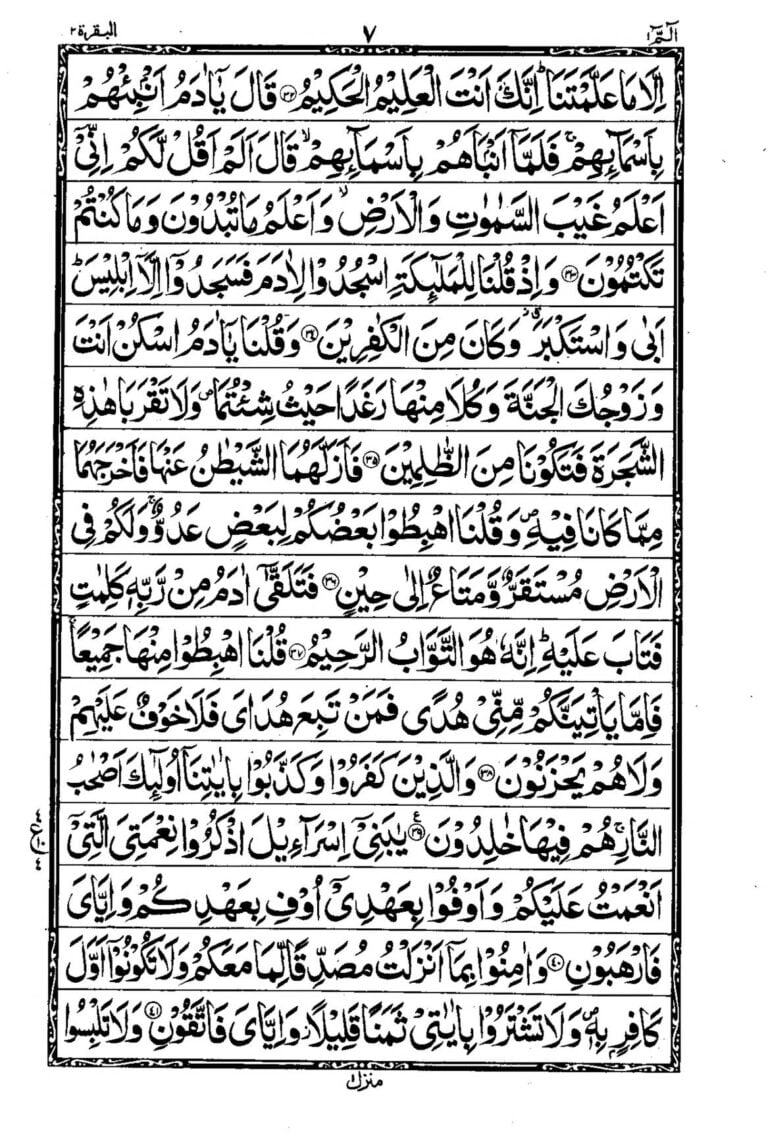 الٓمّٓ ۱ ۷ البقرة ۲
اِلَّا مَا عَلَّمْتَنَا ؕ اِنَّكَ اَنْتَ الْعَلِيْمُ الْحَكِيْمُ ۝۳۲ قَالَ يٰۤاٰدَمُ اَنْۢبِئْهُمْ
بِاَسْمَآئِهِمْ ۚ فَلَمَّاۤ اَنْۢبَاَهُمْ بِاَسْمَآئِهِمْ ۙ قَالَ اَلَمْ اَقُلْ لَّكُمْ اِنِّيْۤ
اَعْلَمُ غَيْبَ السَّمٰوٰتِ وَالْاَرْضِ ۙ وَاَعْلَمُ مَا تُبْدُوْنَ وَمَا كُنْتُمْ
تَكْتُمُوْنَ ۝۳۳ وَاِذْ قُلْنَا لِلْمَلٰٓئِكَةِ اسْجُدُوْا لِاٰدَمَ فَسَجَدُوْۤا اِلَّاۤ اِبْلِيْسَ ؕ
اَبٰى وَاسْتَكْبَرَ ٗۛ وَكَانَ مِنَ الْكٰفِرِيْنَ ۝۳۴ وَقُلْنَا يٰۤاٰدَمُ اسْكُنْ اَنْتَ
وَزَوْجُكَ الْجَنَّةَ وَكُلَا مِنْهَا رَغَدًا حَيْثُ شِئْتُمَا ۪ وَلَا تَقْرَبَا هٰذِهِ
الشَّجَرَةَ فَتَكُوْنَا مِنَ الظّٰلِمِيْنَ ۝۳۵ فَاَزَلَّهُمَا الشَّيْطٰنُ عَنْهَا فَاَخْرَجَهُمَا
مِمَّا كَانَا فِيْهِ ۪ وَقُلْنَا اهْبِطُوْا بَعْضُكُمْ لِبَعْضٍ عَدُوٌّ ۚ وَلَكُمْ فِي
الْاَرْضِ مُسْتَقَرٌّ وَّمَتَاعٌ اِلٰى حِيْنٍ ۝۳۶ فَتَلَقّٰۤى اٰدَمُ مِنْ رَّبِّهٖ كَلِمٰتٍ
فَتَابَ عَلَيْهِ ؕ اِنَّهٗ هُوَ التَّوَّابُ الرَّحِيْمُ ۝۳۷ قُلْنَا اهْبِطُوْا مِنْهَا جَمِيْعًا ۚ
فَاِمَّا يَاْتِيَنَّكُمْ مِّنِّيْ هُدًى فَمَنْ تَبِعَ هُدَايَ فَلَا خَوْفٌ عَلَيْهِمْ
وَلَا هُمْ يَحْزَنُوْنَ ۝۳۸ وَالَّذِيْنَ كَفَرُوْا وَكَذَّبُوْا بِاٰيٰتِنَاۤ اُولٰٓئِكَ اَصْحٰبُ
النَّارِ ۚ هُمْ فِيْهَا خٰلِدُوْنَ ۝۳۹ يٰبَنِيْۤ اِسْرَآءِيْلَ اذْكُرُوْا نِعْمَتِيَ الَّتِيْۤ
اَنْعَمْتُ عَلَيْكُمْ وَاَوْفُوْا بِعَهْدِيْۤ اُوْفِ بِعَهْدِكُمْ وَاِيَّايَ
فَارْهَبُوْنِ ۝۴۰ وَاٰمِنُوْا بِمَاۤ اَنْزَلْتُ مُصَدِّقًا لِّمَا مَعَكُمْ وَلَا تَكُوْنُوْۤا اَوَّلَ
كَافِرٍۭ بِهٖ ۪ وَلَا تَشْتَرُوْا بِاٰيٰتِيْ ثَمَنًا قَلِيْلًا ؗ وَّاِيَّايَ فَاتَّقُوْنِ ۝۴۱ وَلَا تَلْبِسُوا
منزل